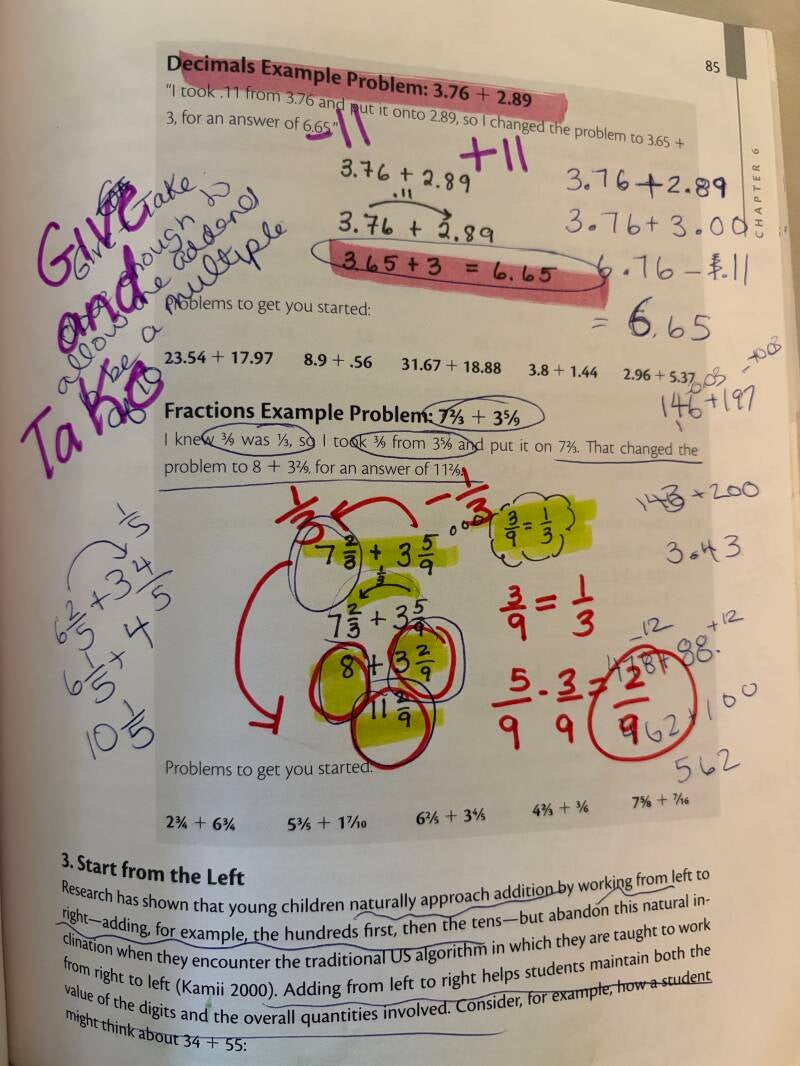 85
CHAPTER 6
Decimals Example Problem: 3.76 + 2.89
"I took .11 from 3.76 and put it onto 2.89, so I changed the problem to 3.65 +
3, for an answer of 6.65."
-11
+11
3.76 + 2.89
.11
3.76 + 2.89
3.65 + 3 = 6.65
3.76+2.89
3.76+3.00
6.76 - .11
= 6.65
GIVE
and
TaKe
Give + Take
enough to
allow one addend
to be a multiple
Problems to get you started:
23.54 + 17.97 8.9 + .56 31.67 + 18.88 3.8 + 1.44 2.96 + 5.37
146+197
143+200
Fractions Example Problem: 7⅔ + 35⁄9
I knew 3⁄9 was ⅓, so I took 3⁄9 from 35⁄9 and put it on 7⅔. That changed the
problem to 8 + 32⁄9, for an answer of 112⁄9.
1/3
-1/3
7 2/3 + 3 5/9
3/9 = 1/3
1/3
7 2/3 + 3 5/9
8 + 3 2/9
11 2/9
3/9 = 1/3
5/9 - 3/9 = 2/9
1/5
6 2/5 + 3 4/5
6 1/5 + 4
10 1/5
3.43
-12
+12
+88
462+100
562
Problems to get you started:
2¾ + 6¾ 5⅗ + 17⁄10 6⅖ + 3⅘ 4⅔ + 3⁄6 7⅝ + 7⁄16
3. Start from the Left
Research has shown that young children naturally approach addition by working from left to
right—adding, for example, the hundreds first, then the tens—but abandon this natural in-
clination when they encounter the traditional US algorithm in which they are taught to work
from right to left (Kamii 2000). Adding from left to right helps students maintain both the
value of the digits and the overall quantities involved. Consider, for example, how a student
might think about 34 + 55: